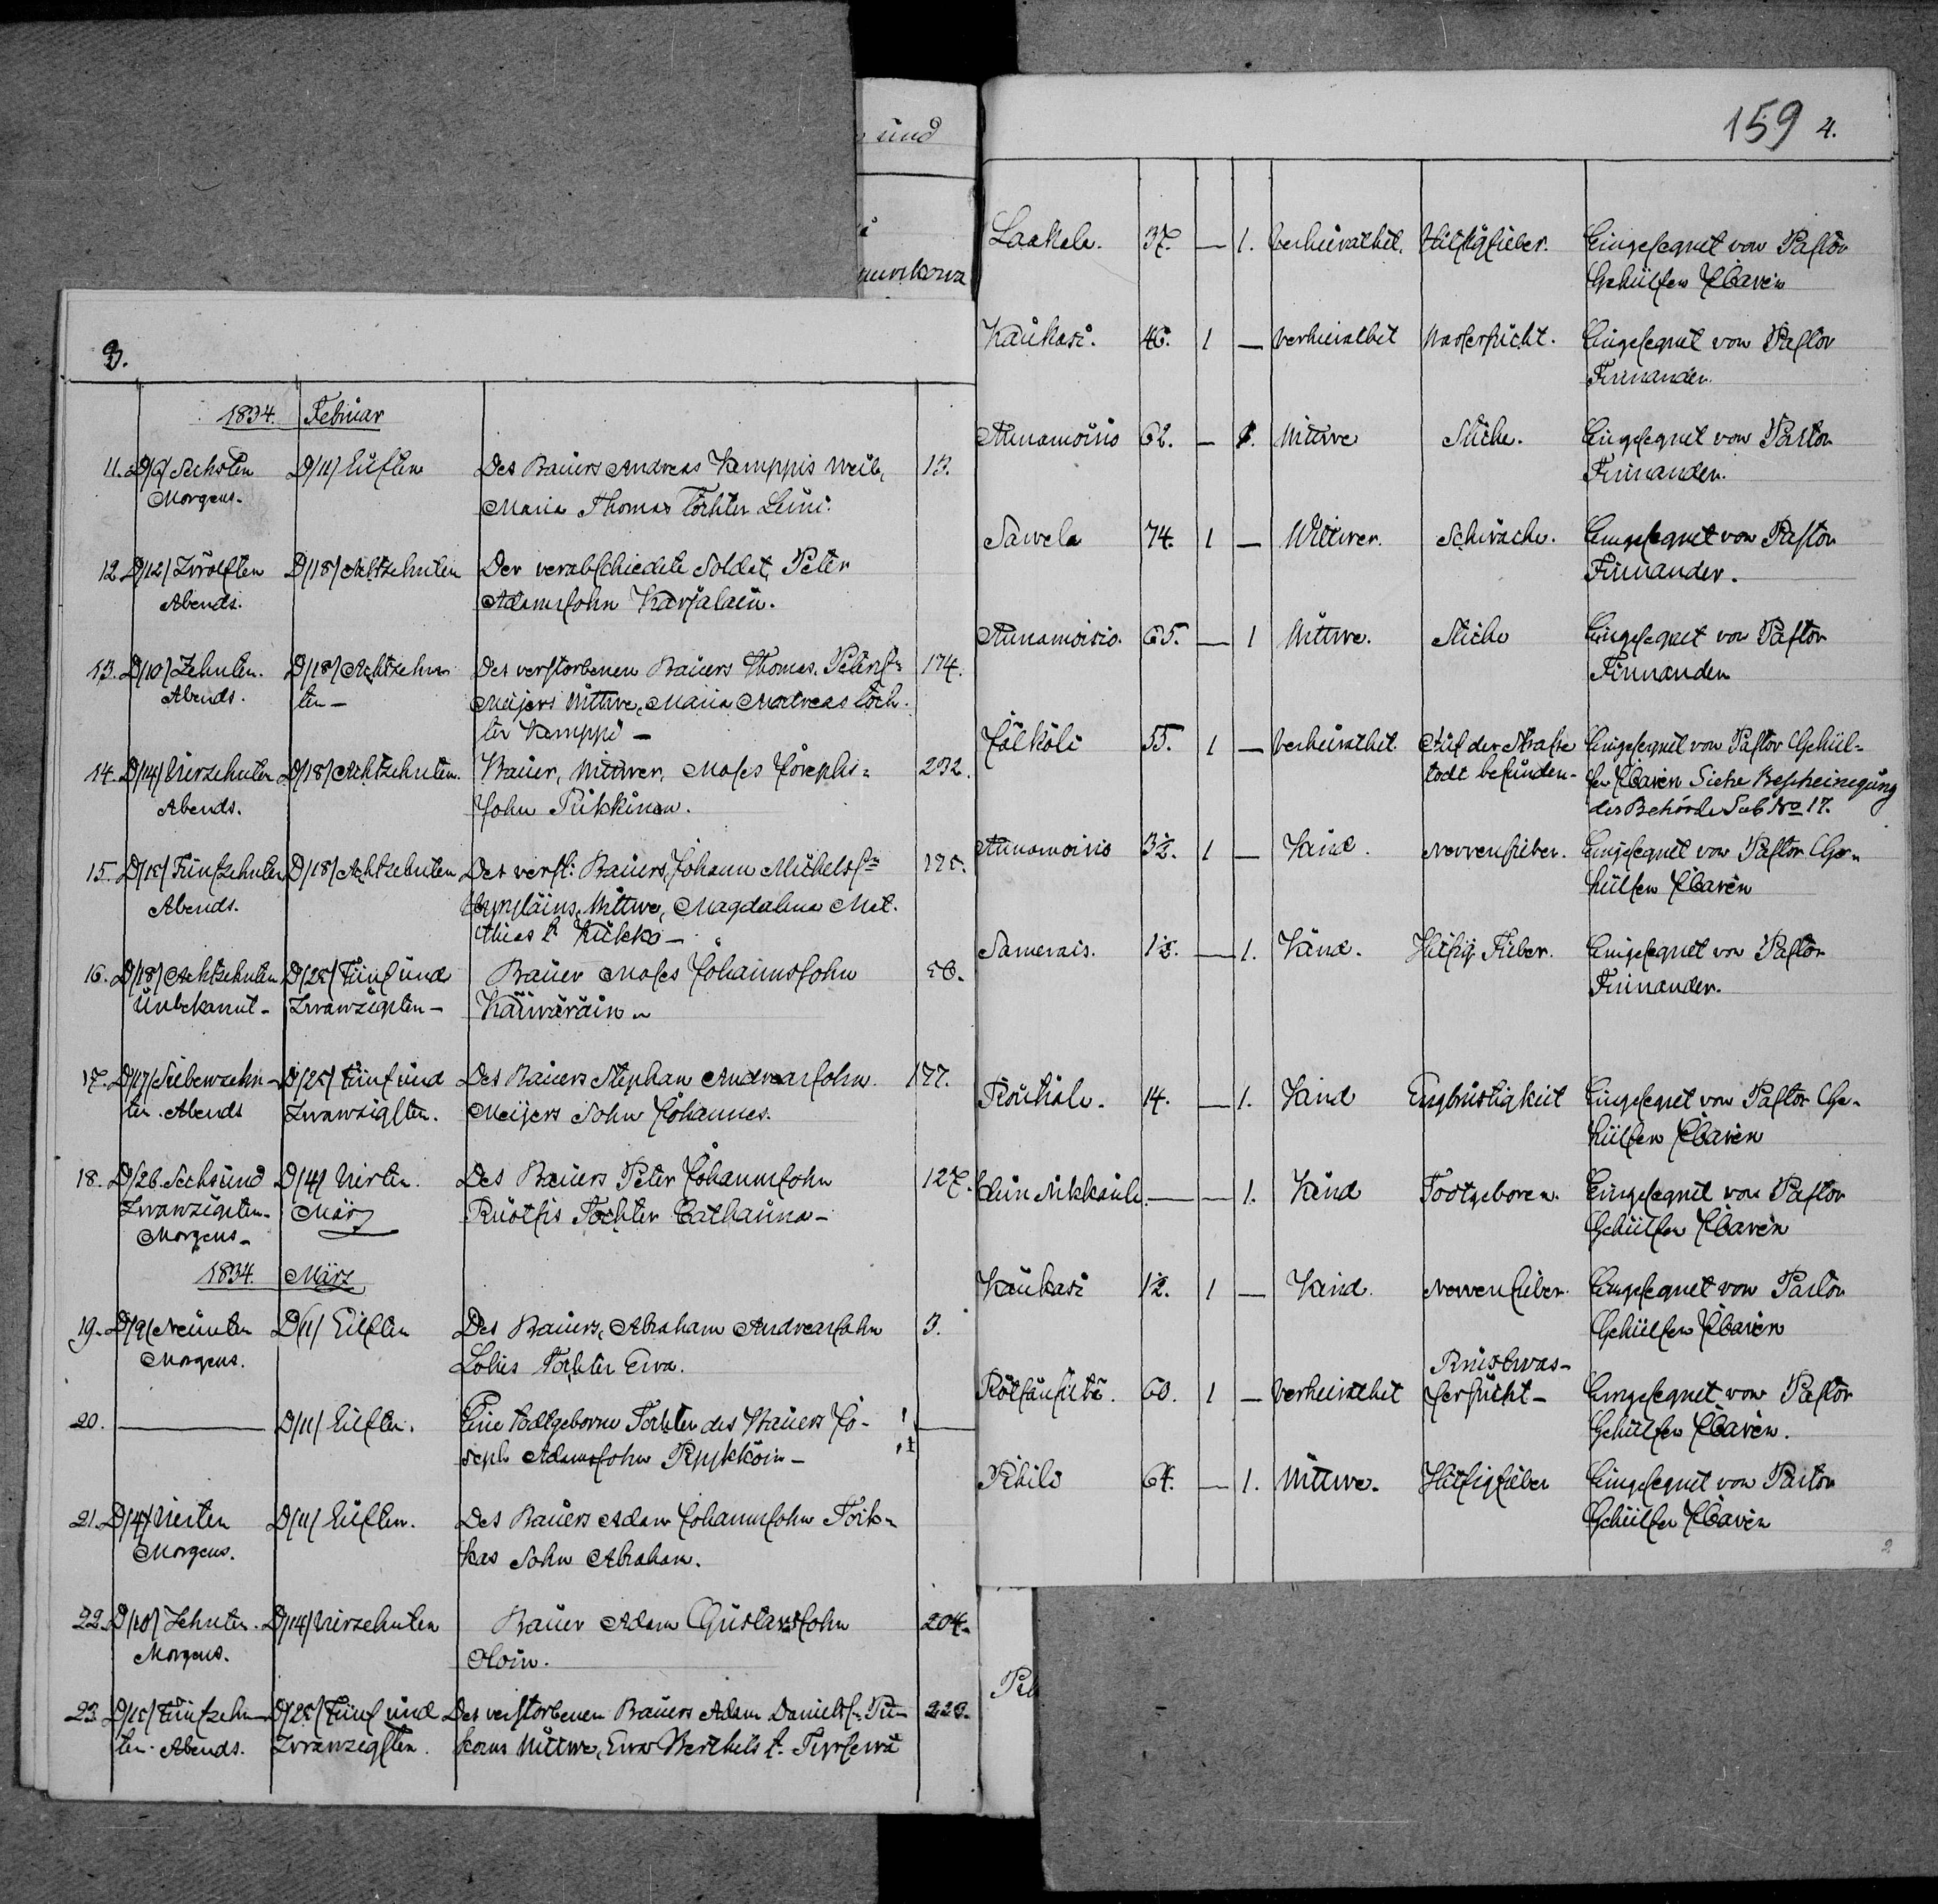 3.
1834. Februar
11. D/6/ Sechsten D/11/ Eilften Des Bauers Andreas Kemppis Weib, 13.
Morgens. Maria Thomas Tochter
12. D/12/ Zwölften D/18/ Achtzehnten Der verabschiedete Soldat, Peter
Abends. Adamssohn Karjalain.
13. D/10/ Zehnten. D/18/ Achtzehn Des verstorbenen Bauers Thomas Peterss: 174.
Abends. ten — Meijers Wittwe, Maria Andreas Toch-
ter Kemppi —
14. D/14/ Vierzehnten D/18/ Achtzehnten. Bauer, Wittwer, Moses Josephs= 232.
Abends. sohn Pukkinen.
15. D/15/ Fünfzehnten D/18/ Achtzehnten Des verst: Bauers, Johann Michelss:
Abends. Wittwe, Magdalena Mat-
thias t. Kukko —
16. D/18/ Achtzehnten D/25/ Fünf und Bauer Moses Johannssohn 56.
Unbekannt — Zwanzigsten —
17. D/17/ Siebenzehn- D/25/ Fünf und Des Bauers Stephan Andreassohn 177.
ten. Abends Zwanzigsten. Meijers Sohn Johannes.
18. D/26. Sechs und D/4/ Vierten. Des Bauers Peter Johannssohn 127.
Zwanzigsten — März Ruotsis Tochter Catharina —
Morgens —
1834. März
19. D/9/ Neunten D/11/ Eilften Des Bauers, Abraham Andreassohn 3.
Morgens. Tochter Ewa.
20. — D/11/ Eilften. Eine todtgeborene Tochter des Bauers Jo- —
seph Adamssohn Pykköin —
21. D/4/ Vierten D/11/ Eilften. Des Bauers Adam Johannssohn Torik-
Morgens. kas Sohn Abraham.
22. D/10/ Zehnten. D/14/ Vierzehnten Bauer Adam Gustavssohn 204.
Morgens. Oloin.
23. D/15/ Fünfzehn- D/25/ Fünf und Des verstorbenen Bauers Adam Daniels: Pu- 223.
ten. Abends. Zwanzigsten. Wittwe, Ewa Berthils t.
und
159 4.
Laakala. 37. — 1. Verheirathet. Hitzigfieber. Eingesegnet von Pastor
Gehülfen Clavèn
Kaukasi. 46. 1 — Verheirathet Wassersucht. Eingesegnet von Pastor
Finnander.
Annamoisio 62. — 1. Wittwe Stiche. Eingesegnet von Pastor
Finnander.
Sawela 74. 1 — Wittwer. Schwäche. Eingesegnet von Pastor
Finnander.
Annamoisio. 65. — 1 Wittwe. Stiche Eingesegnet von Pastor
Finnander
Jälköli 55. 1 — Verheirathet. Auf der Strasse Eingesegnet von Pastor Gehül-
todt befunden — fen Clavèn Siehe Bescheinigung
der Behörde Sub No 17.
Annamoisio 3½. 1 — Kind. Nervenfieber. Eingesegnet von Pastor Ge-
hülfen Clavèn
Samerais. 1½. — 1. Kind. Hitzig Fieber. Eingesegnet von Pastor
Finnander.
Rouhiala. 14. — 1. Kind Engbrüstigkeit Eingesegnet von Pastor Ge-
hülfen Clavèn
— — 1. Kind Todtgeboren. Eingesegnet von Pastor
Gehülfen Clavèn
Kaukasi 1½. 1 — Kind. Nervenfieber. Eingesegnet von Pastor
Gehülfen Clavèn
Brustwas-
60. 1 — Verheirathet sersucht — Eingesegnet von Pastor
Gehülfen Clavèn.
64. — 1. Wittwe. Hitzigfieber Eingesegnet von Pastor
Gehülfen Clavèn
2